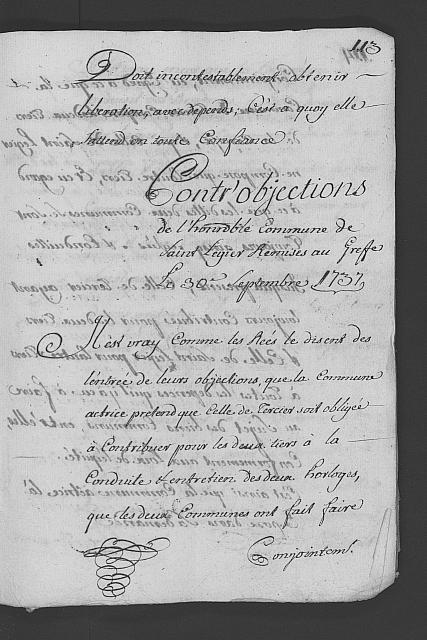 113
Doit incontestablement obtenir
liberation, avec depends; C'est a quoy elle
s'attend en toute Confiance
Contr'objections
de l'honnoble Commune de
Saint Legier Remises au Greffe
Le 30e Septembre 1737,
Il est vray Comme les Rées le disent des
l'entrée de leurs objections, que la Commune
actrice pretend que Celle de Tercier soit obligée
à Contribuer pour les deux tiers à la
Conduite & entretien des deux horloges,
que les deux Communes ont fait faire
Conjointemt.